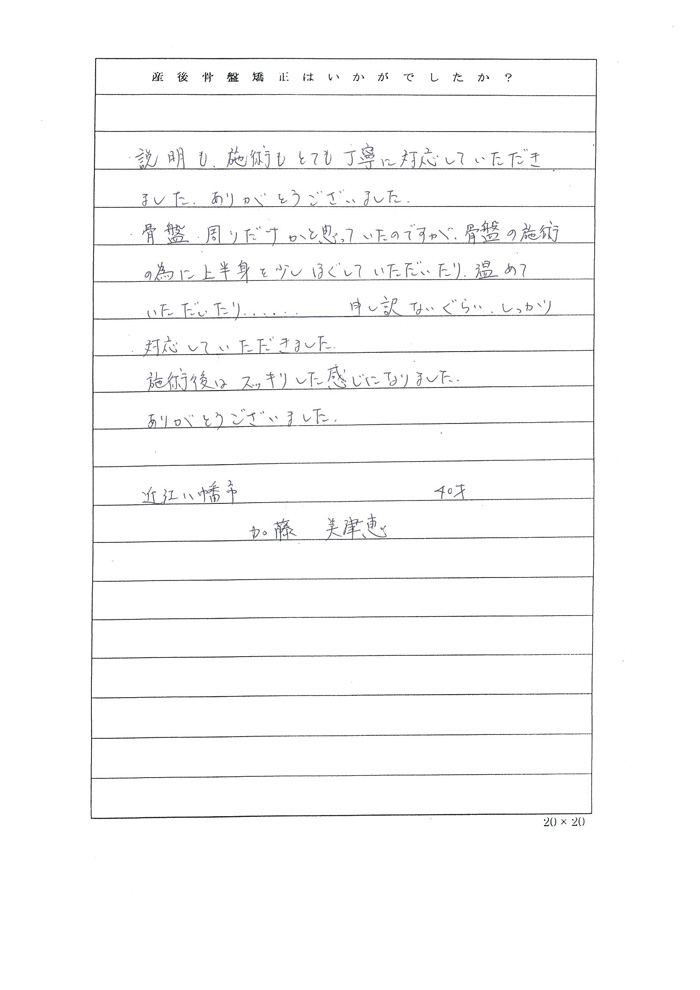 産後骨盤矯正はいかがでしたか？
説明も、施術もとても丁寧に対応していただき
ました。ありがとうございました。
骨盤周りだけかと思っていたのですが、骨盤の施術
の為に上半身を少しほぐしていただいたり、温めて
いただいたり...... 申し訳ないぐらい、しっかり
対応していただきました。
施術後はスッキリした感じになりました。
ありがとうございました。
近江八幡市 40才
加藤 美津恵
20×20